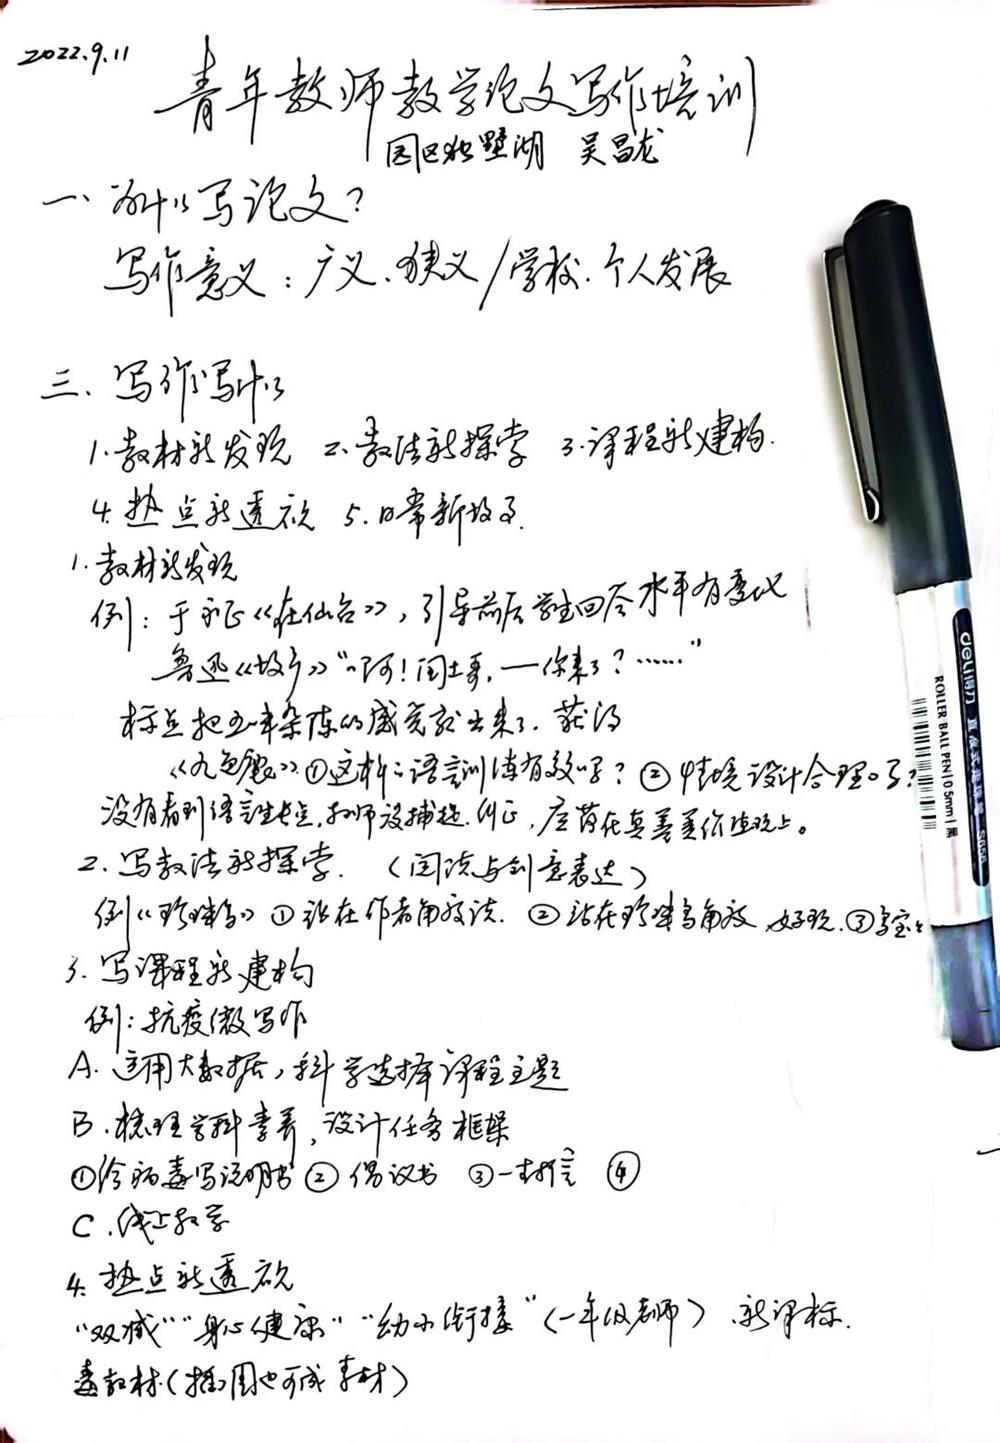 2022.9.11
青年教师教学论文写作培训
园区独墅湖 吴昌龙
一、为什么写论文?
写作意义：广义、狭义/学校、个人发展
三、写作写什么
1.教材新发现 2.教法新探索 3.课程新建构.
4.热点新透视 5.日常新故事.
1.教材新发现
例：于永正《在仙台》，引导前后学生回答水平有变化
鲁迅《故乡》“啊！闰土哥，—你来了？……”
标点把五味杂陈的感觉就出来了.获得
《九色鹿》①这样的语言训练有效吗？②情境设计合理吗？
没有看到语言生长点，教师没捕捉.纠正，应落在真善美价值观上。
2.写教法新探索.（阅读与创意表达）
例《珍珠鸟》①站在作者角度读.②站在珍珠鸟角度 好玩.③鸟宝宝
3.写课程新建构
例：抗疫微写作
A.运用大数据，科学选择课程主题
B.梳理学科素养，设计任务框架
①给病毒写说明书②倡议书 ③一封信 ④
C.线上教学
4.热点新透视
“双减”“身心健康”“幼小衔接”（一年级老师）.新课标.
毒教材（插图也可成素材）
deli得力 直液式走珠笔 S656
ROLLER BALL PEN|0.5mm|黑